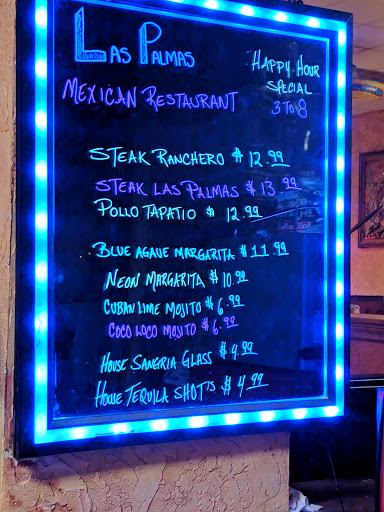 Las Palmas
Mexican Restaurant
Happy Hour
Special
3 to 8
Steak Ranchero $12.99
Steak Las Palmas $13.99
Pollo Tapatio $12.99
Blue Agave Margarita $11.99
Neon Margarita $10.99
Cuban Lime Mojito $6.99
Coco Loco Mojito $6.99
House Sangria Glass $4.99
House Tequila Shot's $4.99